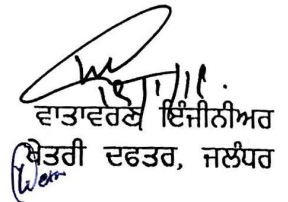 ਵਾਤਾਵਰਣ ਇੰਜੀਨੀਅਰ
ਖੇਤਰੀ ਦਫਤਰ, ਜਲੰਧਰ